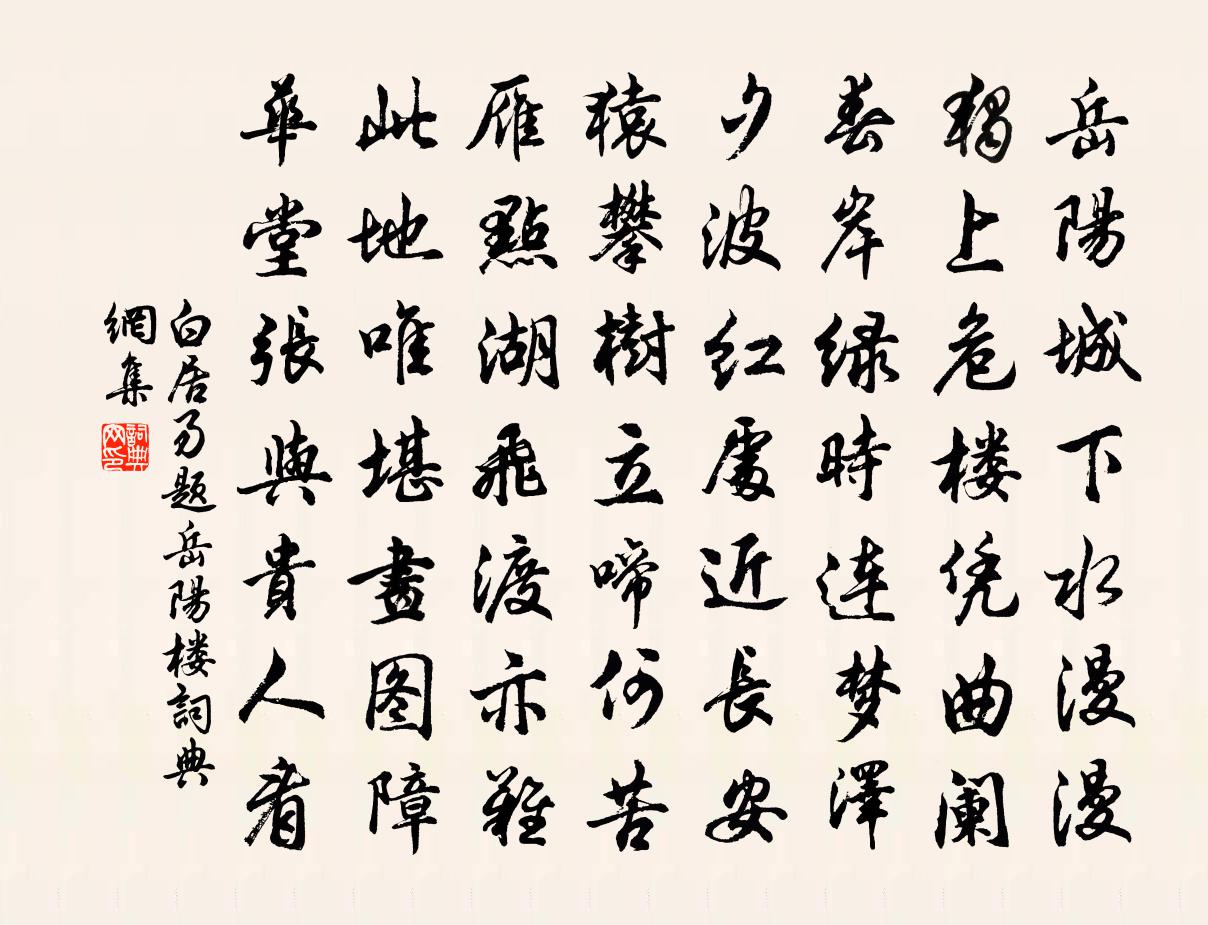 岳陽城下水漫漫
獨上危楼凭曲阑
春岸緑時連梦澤
夕波红處近長安
猿攀樹立啼何苦
雁點湖飛渡亦難
此地唯堪畫图障
華堂張與貴人看
白居易题岳陽楼詞典
網集
詞典
网印